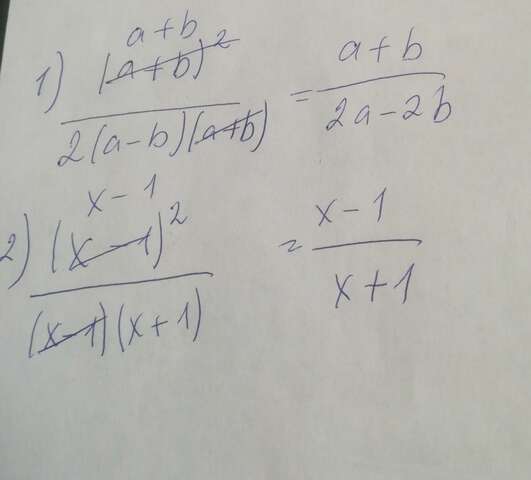 a+b
1) (a+b)² / 2(a-b)(a+b) = a+b / 2a-2b
x-1
2) (x-1)² / (x-1)(x+1) = x-1 / x+1